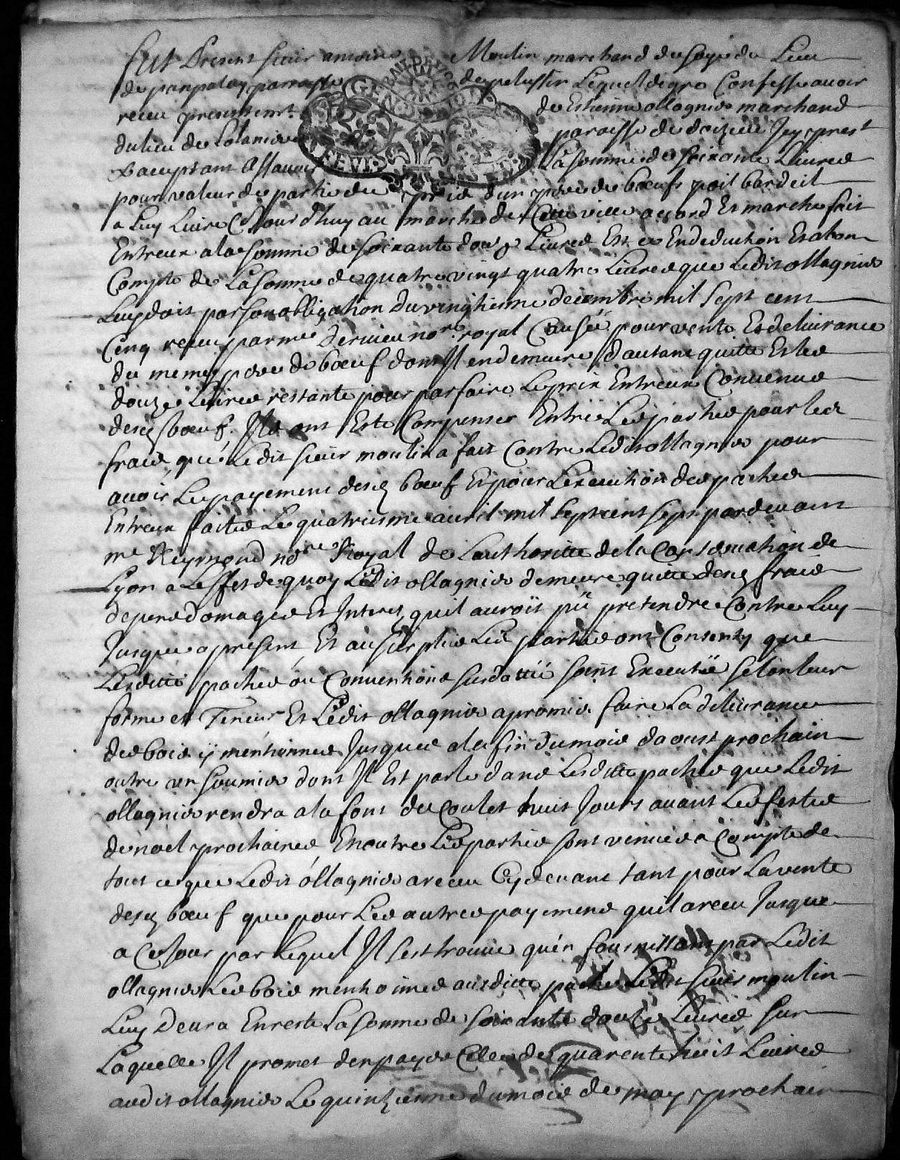 fut present sieur antoine Moulin marchand du lieu
de panpalay parroisse de pelussin lequel degre Confesse avoir
receu presentement de Estienne ollagnier marchand
du lieu de Colanie parroisse de doizieu Icy prest
& aceptant assavoir La somme de soixante Livres
pour valeur de partie du prix d'un de bœufs poil bardeil
a Luy Livre Ce Jour d'huy au marche de Cette ville accord Et marche fait
Entreux a la somme de soixante douze Livres Et ce En deduction Et a bon
Compte de La somme de quatre vingt quatre Livres que Ledit ollagnier
Luy doit par son obligation du vingtieme decembre mil sept cent
Cinq receu par me dervieu nore royal Causée pour vente Et delivrance
du meme de bœuf dont Il en demeure d'autant quitte Et les
douze Livres restante pour parfaire Le prix Entreux Convenue
desdz bœuf. Ils ont Este Compenser Entre Les parties pour les
fraix que Ledit sieur moulin a fait Contre Ledit ollagnier pour
avoir Le payement desdz bœuf Et pour L'execution des paches
Entreux faites Le quatriesme avril mil sept cent sept pardevant
me Reymond nore Royal de L'authoritte de la Conservation de
Lyon a L'effet de quoy Ledit ollagnier demeure quitte desdz fraix
depens domages Et Interes qu'il auroit pü pretendre Contre Luy
Jusques a present Et au surplus Les parties ont Consenty que
Lesdittes paches ou Conventions susdattée soint Executtée selon leur
forme et Teneur Et Ledit ollagnier a promis faire La delivrance
des bois y mentionnes Jusques a la fin du mois d'aoust prochain
outre un soumier dont Il Est parle dans Lesdittes paches que Ledit
ollagnier rendra a la font du Coulet huit Jours avant Les festes
de noel prochaines En outre Les parties sont venues a Compte de
tout ce que Ledit ollagnier a receu Cy devant tant pour La vente
desdz bœuf que pour Les autres payemens qu'il a receu Jusque
a Ce Jour par Lequel Il s'est trouvé qu'en fournissant par Ledit
ollagnier Les bois mentionnes ausdittes paches Ledit sieur moulin
Luy devra En reste La somme de soixante douze Livres sur
Laquelle Il promet d'en payer Celle de quarente huit Livres
audit ollagnier Le quinzienne du mois de may prochain